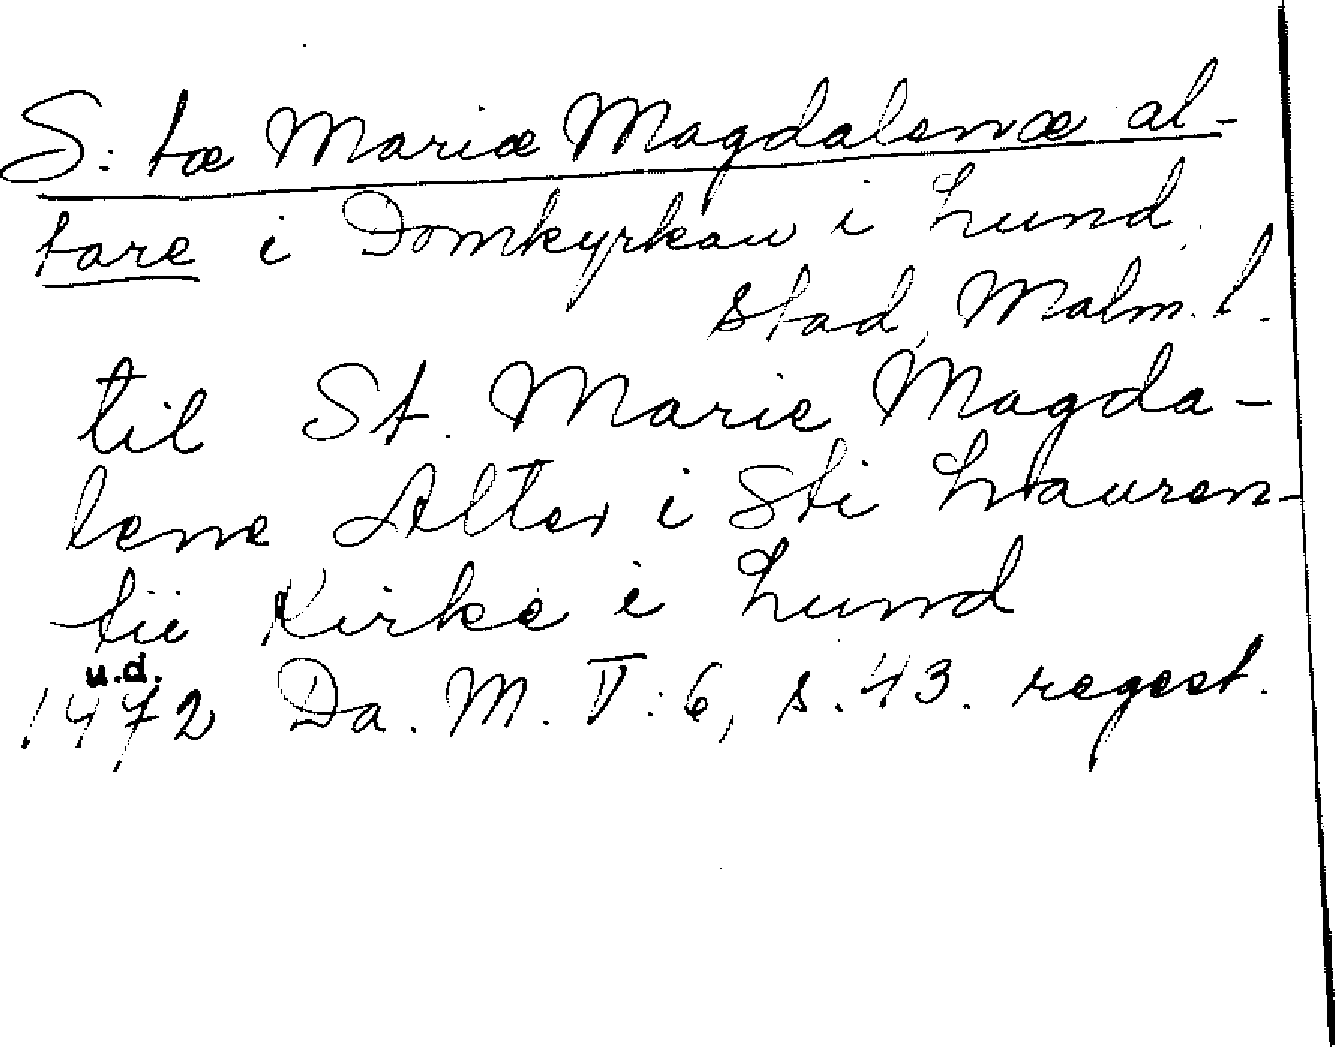 S:tæ Mariæ Magdalenæ al-
tare i Domkyrkan i Lund
stad, Malm. l.
til St. Marie Magda-
lene Alter i Sti Lauren-
tii Kirke i Lund
u.d.
1472 Da. M. V:6, s. 43. regest.